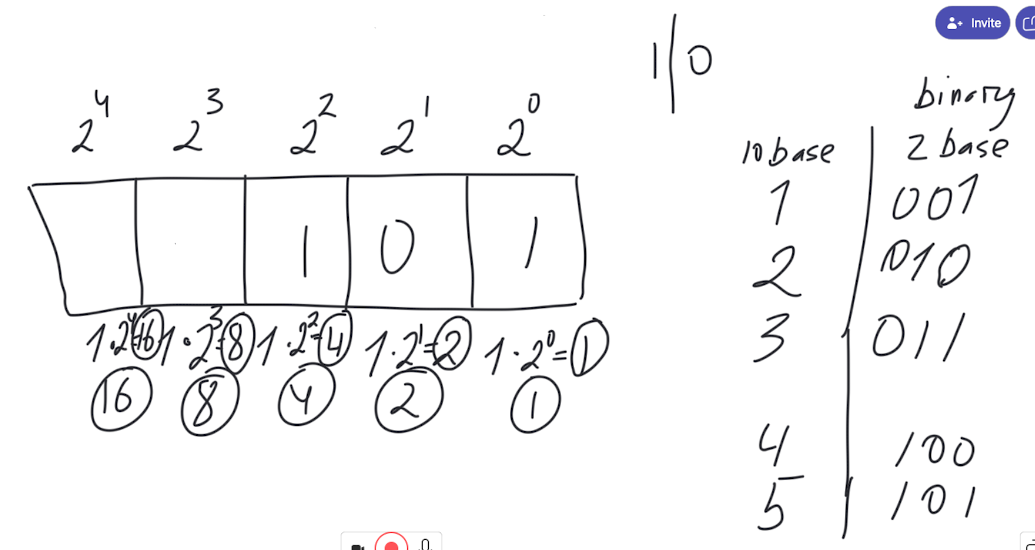 Invite
1|0
2^4 2^3 2^2 2^1 2^0
1 0 1
1·2^4=16 1·2^3=8 1·2^2=4 1·2^1=2 1·2^0=1
16 8 4 2 1
binary
10 base 2 base
1 001
2 010
3 011
4 100
5 101